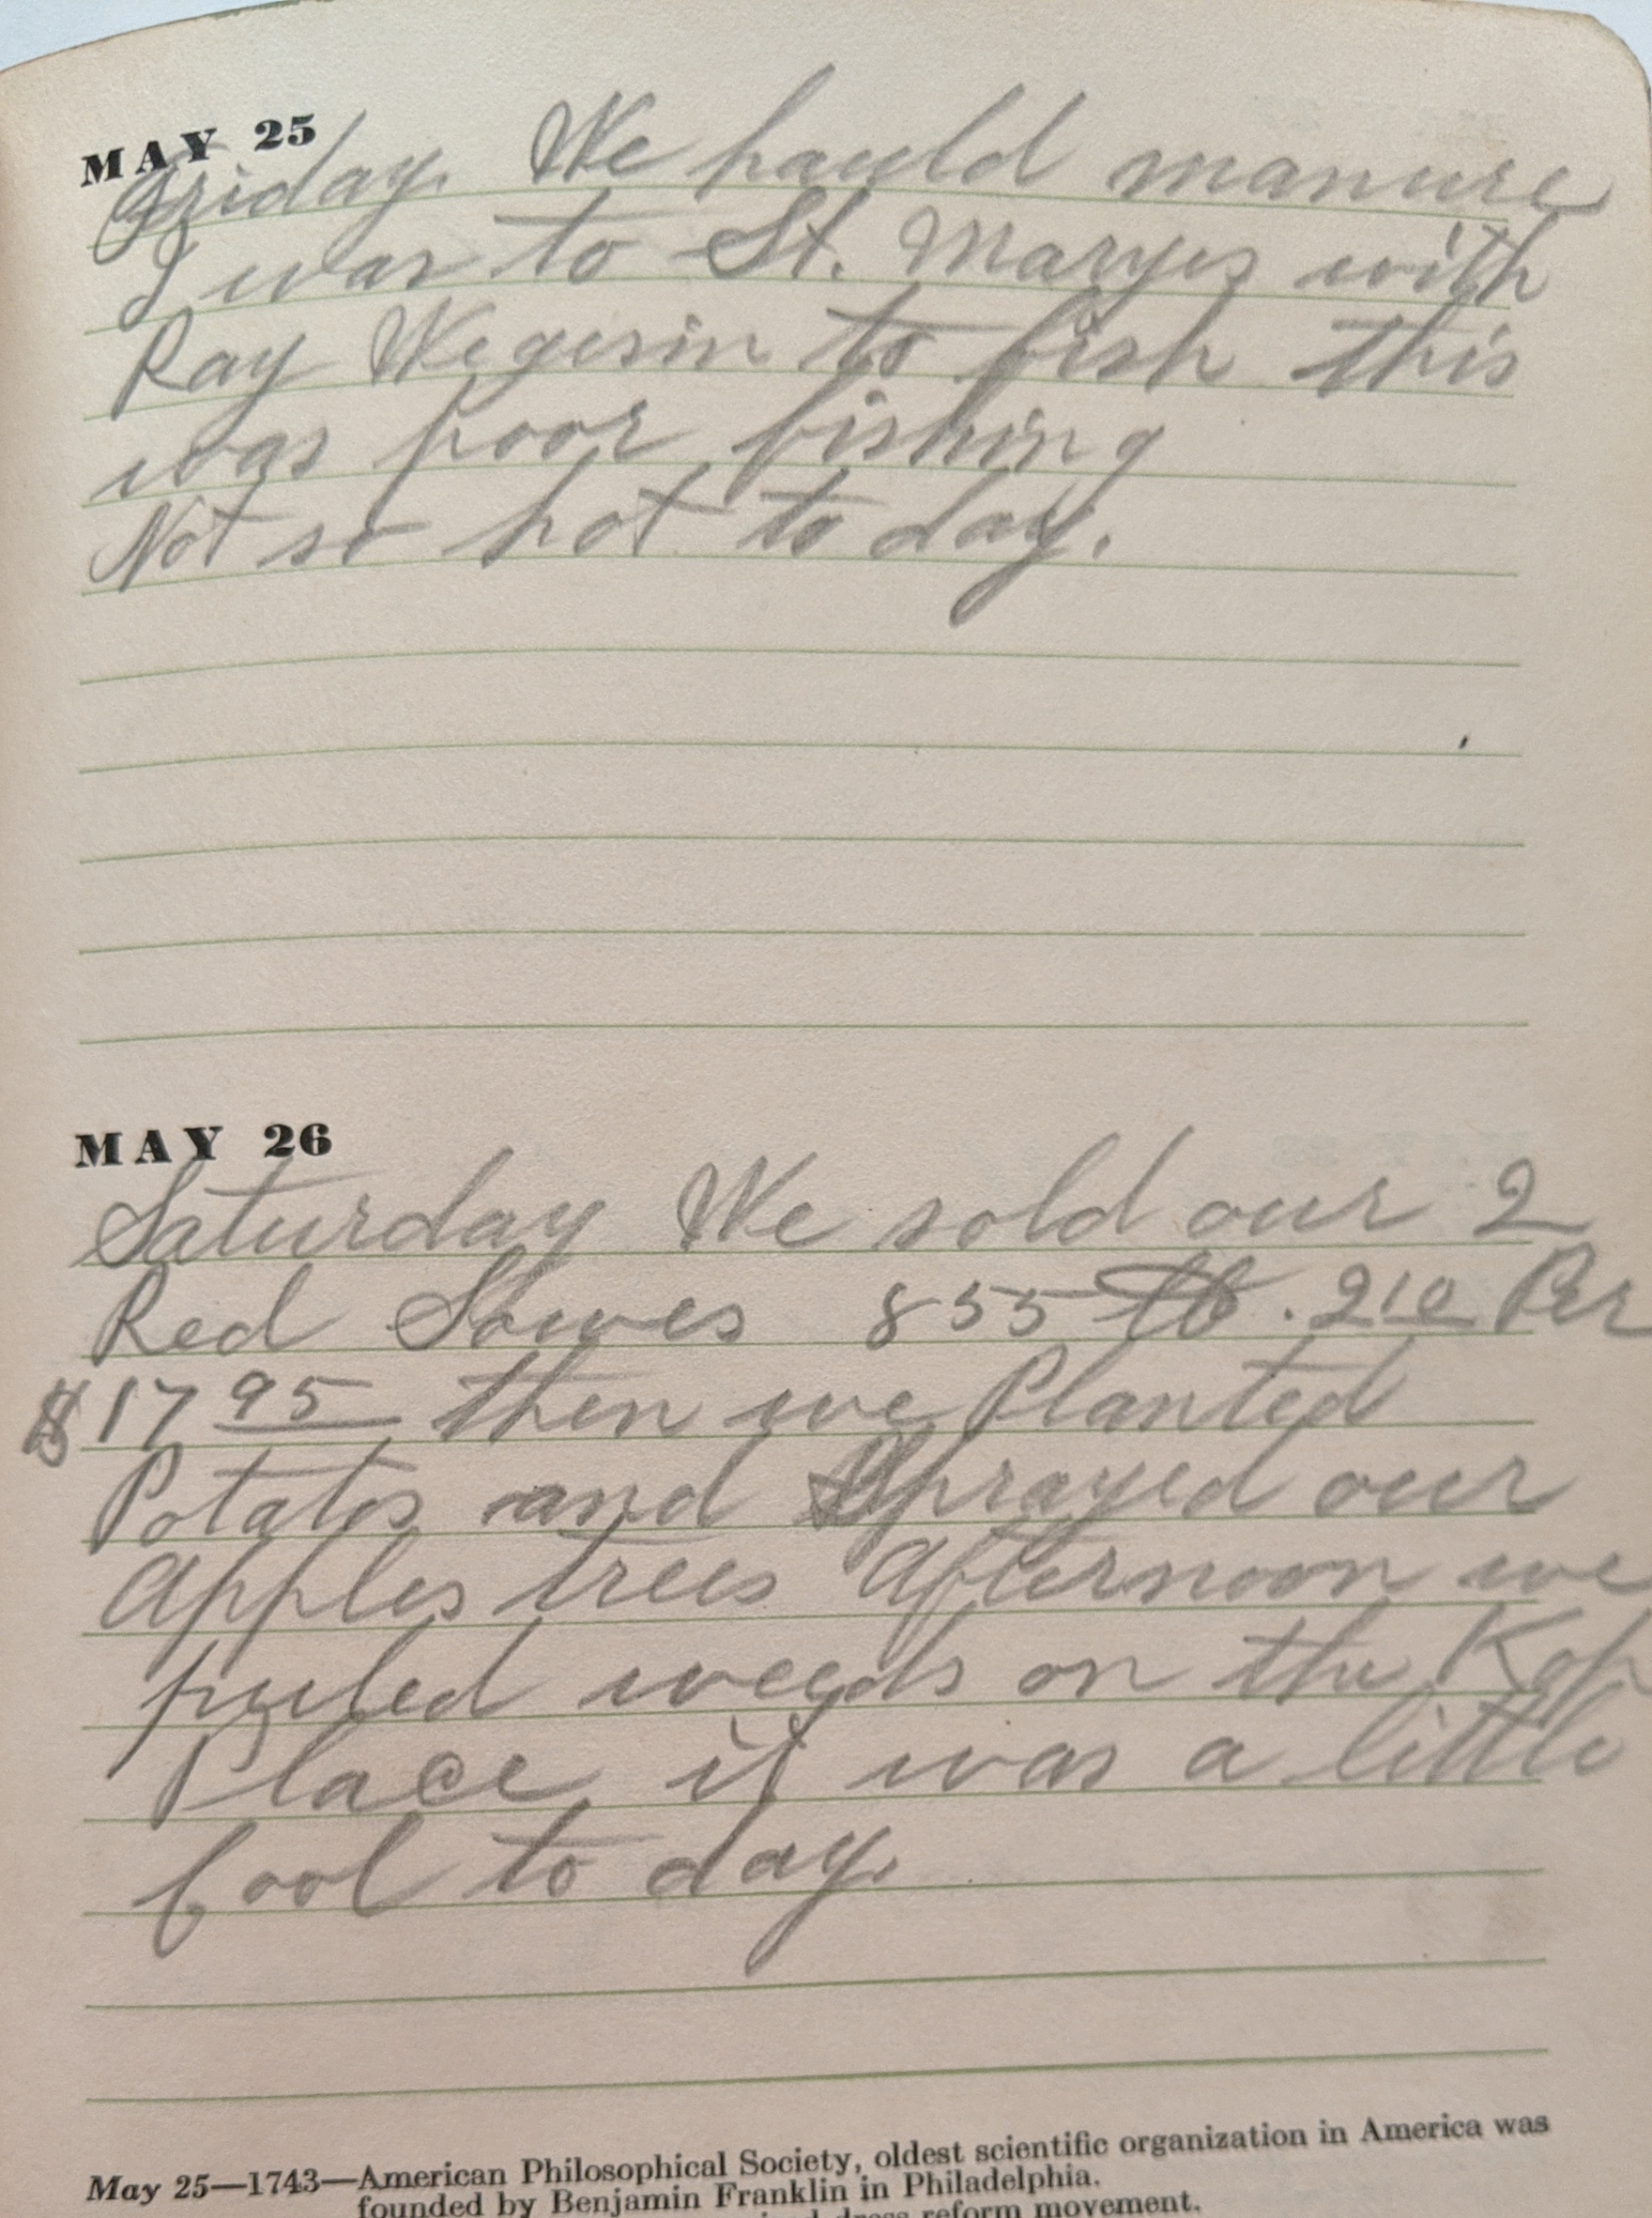 MAY 25
Friday. We hauld manure
I was to St. Maryes with
Ray Wegesin to fish this
was poor fishing
Not so hot to day.
MAY 26
Saturday We sold our 2
Red Sowes 855 lb. 210 Per
$17 95 then we Planted
Potatos and Sprayed our
Apples trees Afternoon we
puled weeds on the Kop
Place it was a little
Cool to day.
May 25—1743—American Philosophical Society, oldest scientific organization in America was
founded by Benjamin Franklin in Philadelphia.
dress reform movement.